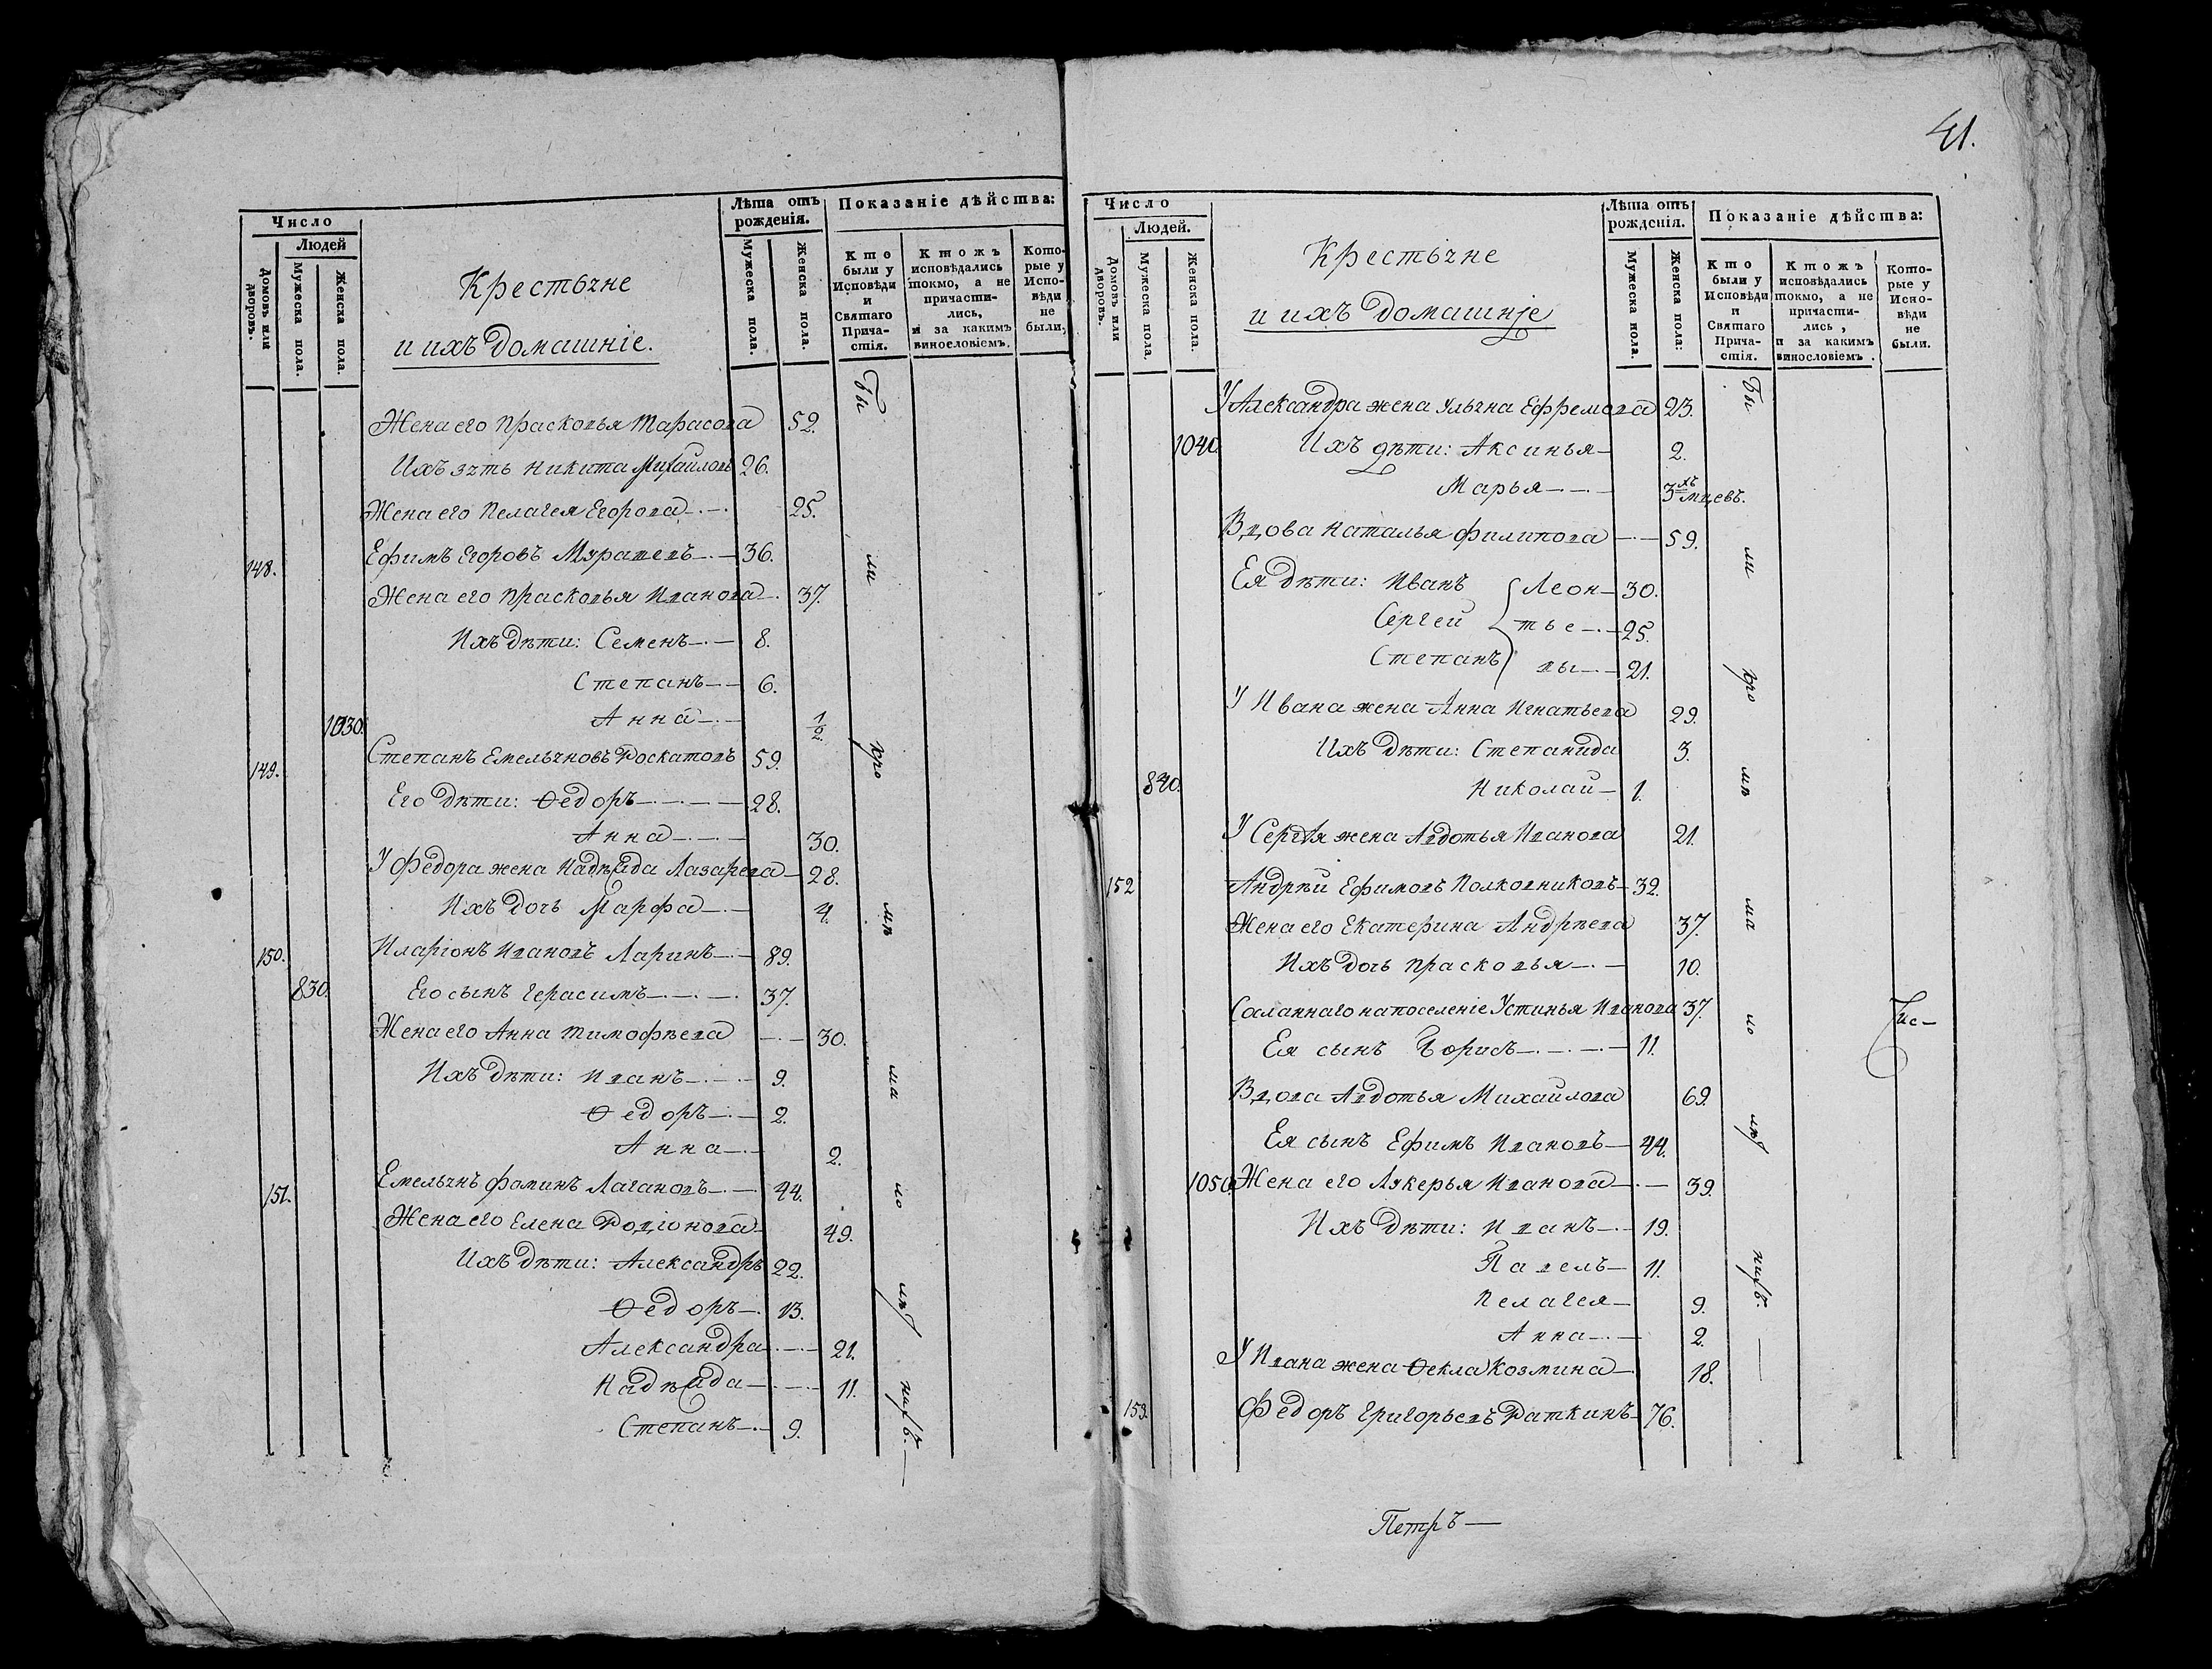 Число
Людей
Домовъ или дворовъ.
Мужеска пола.
Женска пола.
Крестьяне
и ихъ домашніе.
Лѣта отъ рожденія.
Мужеска пола.
Женска пола.
Показаніе дѣйства:
Кто были у Исповѣди и Святаго Прича-стія.
Ктожъ исповѣдались токмо, а не причасти-лись, и за какимъ винословіемъ.
Кото-рые у Испо-вѣди не были.
Жена его Прасковья Тарасова 52.
Ихъ зять Никита Михайловъ 26.
Жена его Пелагея Егорова 25.
148. Ефимъ Егоровъ 36.
Жена его Прасковья Иванова 37.
Ихъ дѣти: Семенъ 8.
Степанъ 6.
1030. Анна 1/2.
149. Степанъ Емельяновъ Роскатовъ 59.
Его дѣти: Ѳедоръ 28.
Анна 30.
У Федора жена Надѣжда Лазарева 28.
Ихъ дочь Марфа 4.
150. Иларіонъ Ивановъ Ларинъ 89.
830. Его сынъ Герасимъ 37.
Жена его Анна Тимофѣева 30.
Ихъ дѣти: Иванъ 9.
Ѳедоръ 2.
Анна 2.
151. Емельянъ Фоминъ Лагановъ 44.
Жена его Елена Родіонова 49.
Ихъ дѣти: Александръ 22.
Ѳедоръ 13.
Александра 21.
Надѣжда 11.
Степанъ 9.
Бы
ли
кро
мѣ
ма
ло
лѣ
41.
Число
Людей.
Домовъ или дворовъ.
Мужеска пола.
Женска пола.
Крестьяне
и ихъ домашніе
Лѣта отъ рожденія.
Мужеска пола.
Женска пола:
Показаніе дѣйства:
Кто были у Исповѣди и Святаго Прича-стія.
Ктожъ исповѣдались токмо, а не причасти-лись, и за какимъ винословіемъ.
Кото-рые у Испо-вѣди не были.
У Александра жена Ульяна Ефремова 23.
1040. Ихъ дѣти: Аксинья 2.
Марья 3хъ мцевъ.
Вдова Наталья Филипова 59.
Ея дѣти: Иванъ Леон 30.
Сергей тье 25.
Степанъ вы 21.
У Ивана жена Анна Игнатьева 29.
Ихъ дѣти: Степанида 3.
840. Николай 1.
У Сергѣя жена Авдотья Иванова 21.
152 Андрѣй Ефимовъ Полковниковъ 32.
Жена его Екатерина Андрѣева 37.
Ихъ дочь Прасковья 10.
Сосланнаго на поселеніе Устинья Иванова 37.
Ея сынъ Борисъ 11.
Вдова Авдотья Михайлова 69.
Ея сынъ Ефимъ Ивановъ 44.
1050. Жена его Лукерья Иванова 39.
Ихъ дѣти: Иванъ 19.
Павелъ 11.
Пелагея 9.
Анна 2.
У Ивана жена Ѳекла Козмина 18.
153. Федоръ Григорьевъ Раткинъ 76.
Бы
ли
кро
мѣ
ма
ло
лѣ
Петръ